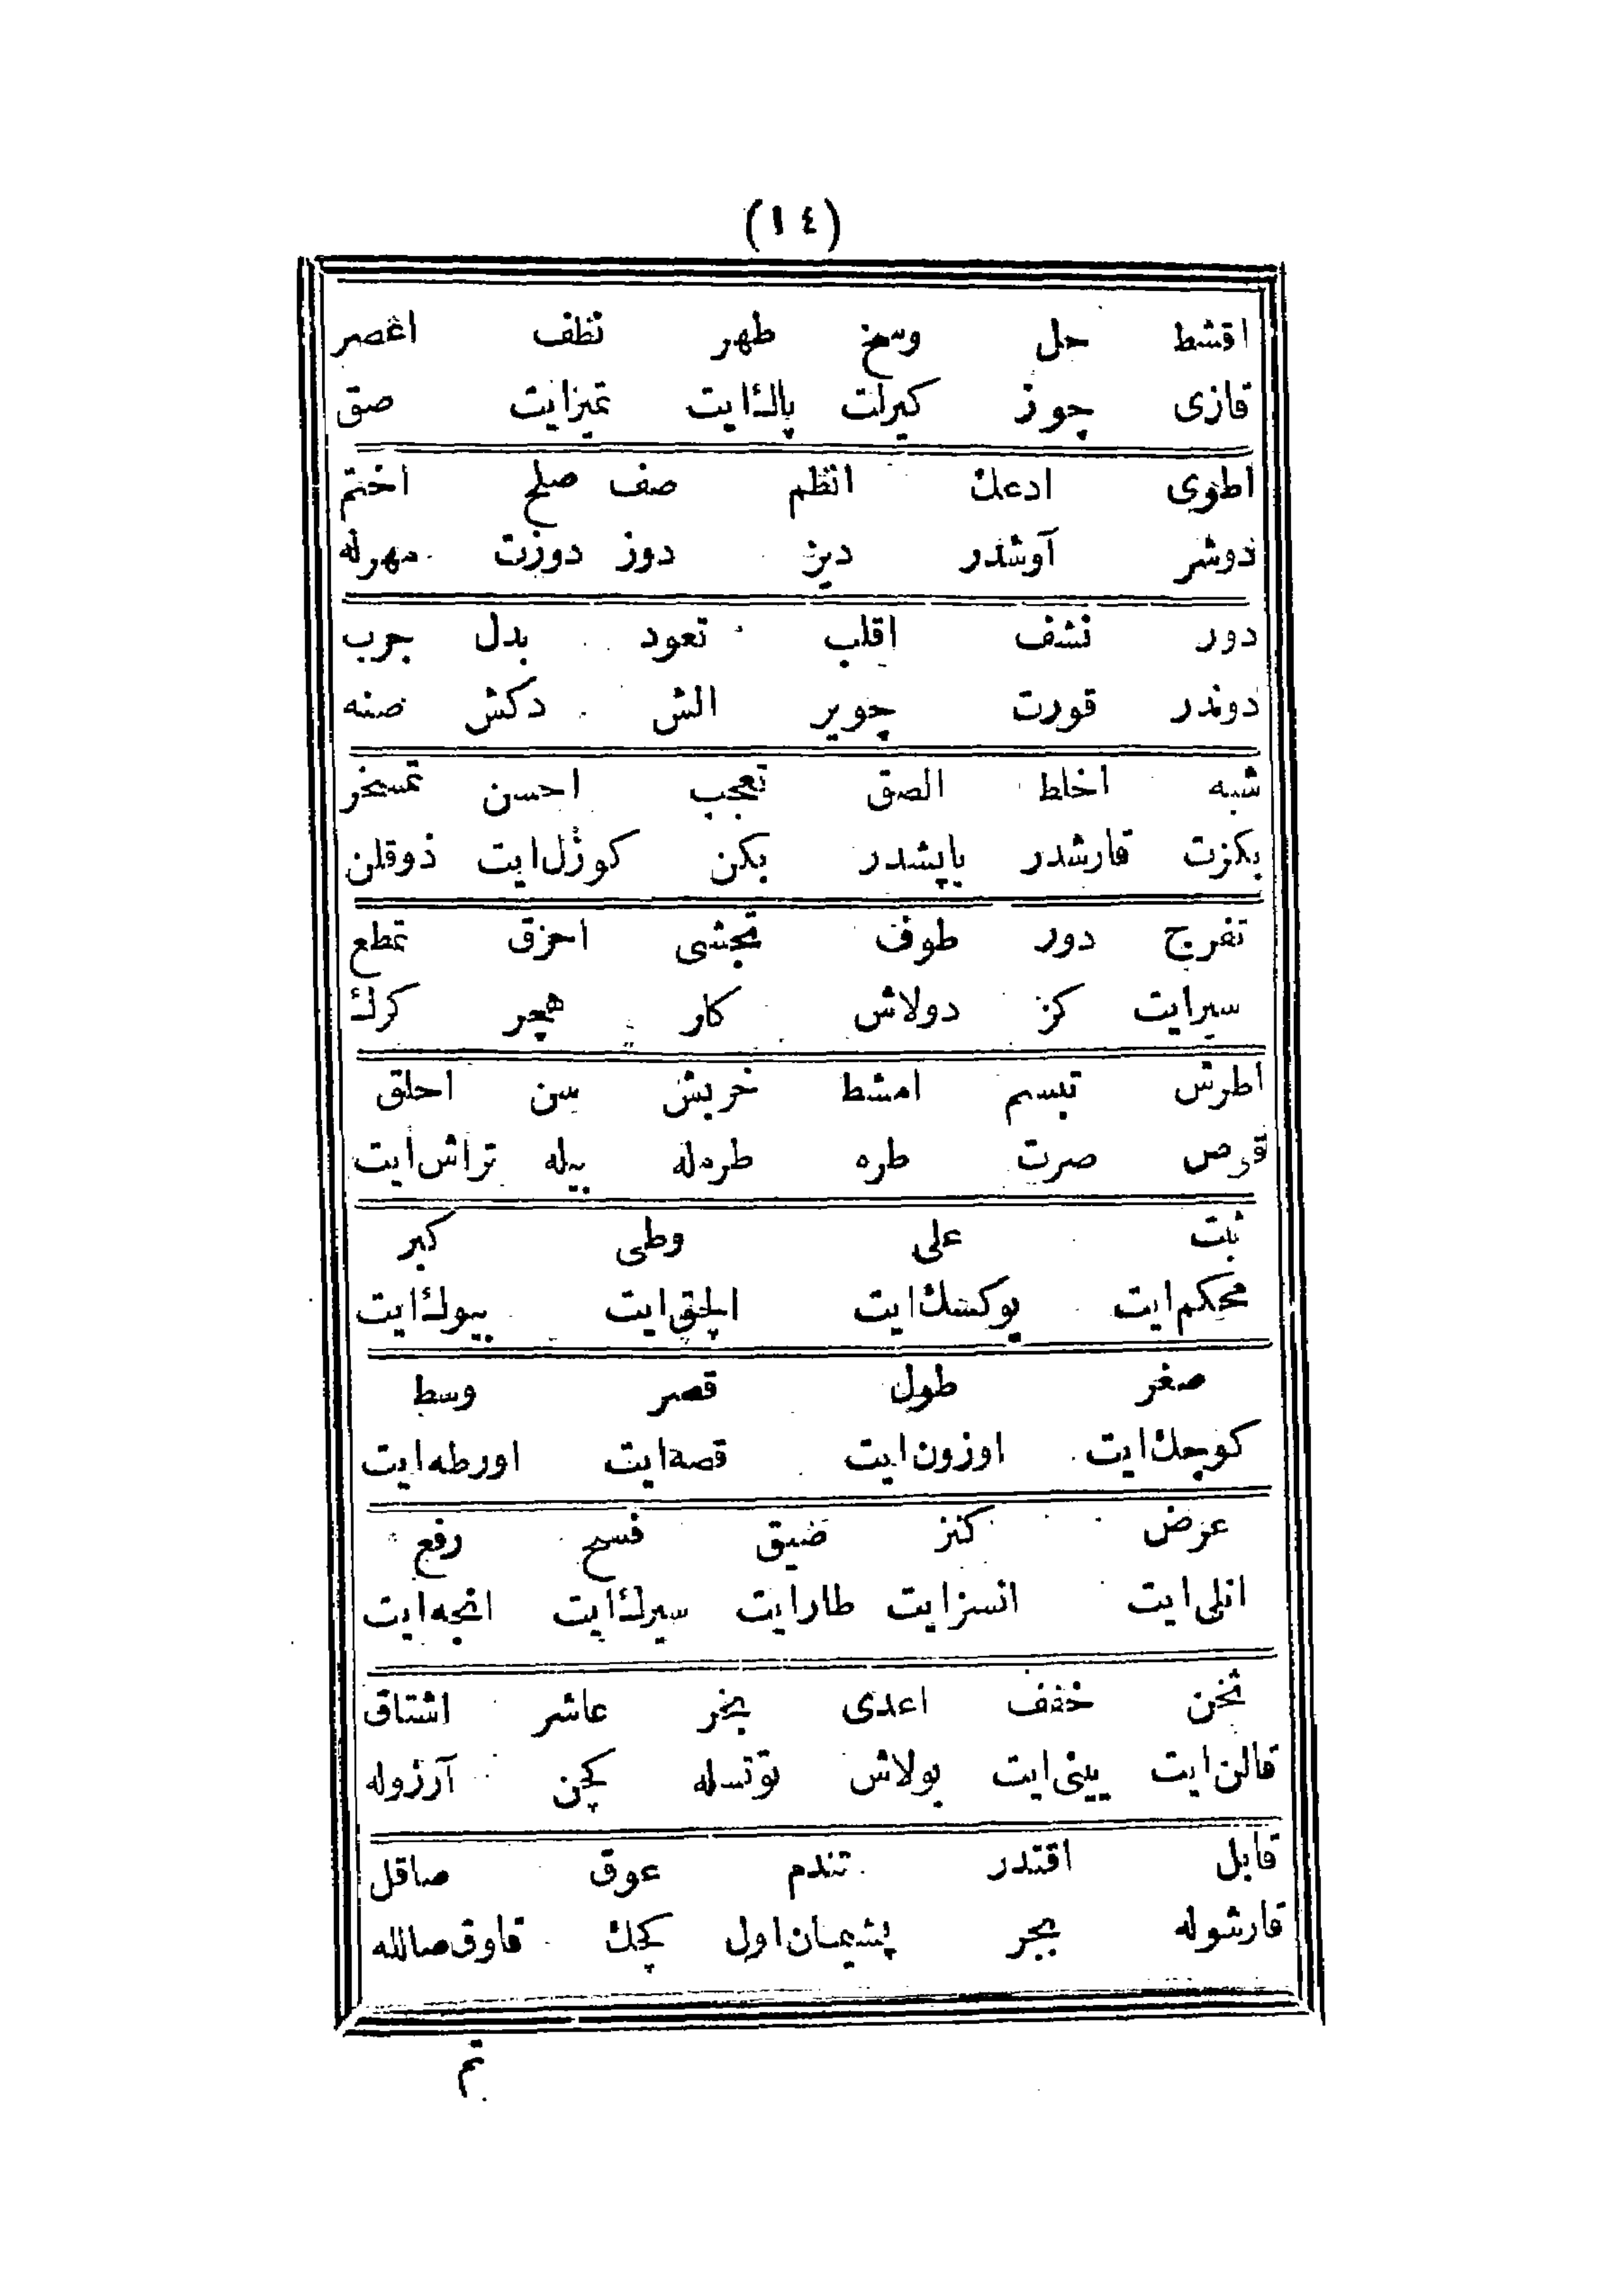 (١٤)
اقشط حل وسخ طهر نظف اعصر
قازی چوز کیرلت پاك‌ایت تمیزایت صق
اطوی ادعك انظم صف صلح اختم
دوشر آوشدر دیز دوز دوزت مهرله
دور نشف اقلب تعود بدل جرب
دوندر قورت چویر الش دکش صنه
شبه اخلط الصق تعجب احسن تمسخر
بکزت قارشدر یاپشدر بکن کوزل‌ایت ذوقلن
تفرج دور طوف تجشی احزق تمطع
سیرایت کز دولاش ککار هچر کرك
اطرش تبسم امشط خربش سن احلق
قوص صرت طره طرمله بیله تراش‌ایت
ثبت علی وطی کبر
محکم‌ایت یوکسك‌ایت الچق‌ایت بیوك‌ایت
صغر طول قصر وسط
کوچك‌ایت اوزون‌ایت قصه‌ایت اورطه‌ایت
عرض کنز ضیق فسح رفع
انلی‌ایت انسزایت طارایت سیرك‌ایت انجه‌ایت
ثخن خفف اعدی بخر عاشر اشتاق
قالن‌ایت یینی‌ایت بولاش توتسله کچن آرزوله
قابل اقتدر تندم عوق صاقل
قارشوله بیجر پشیمان‌اول کچك قاوق‌صالله
تم